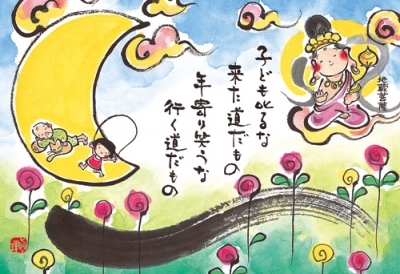 子ども叱るな
来た道だもの
年寄り笑うな
行く道だもの
地蔵菩薩